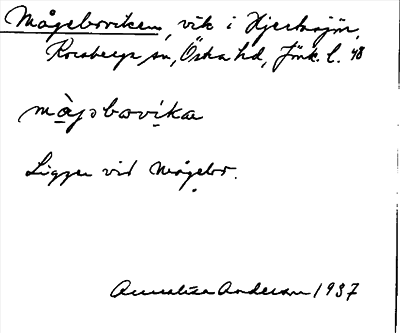 Mågeboviken, vik i Hjertasjön,
Korsberga sn, Östra hd, Jönk. l. 48
màjsbovika
Ligger vid Mågebo.
Annalisa Anderson 1937